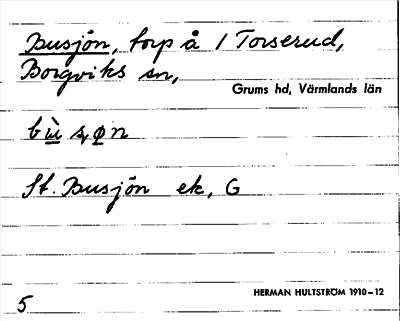 Busjön, torp å 1 Torserud,
Borgviks sn,
Grums hd, Värmlands län
bù̱ ʂø̱n
St. Busjön ek, G
HERMAN HULTSTRÖM 1910–12
5